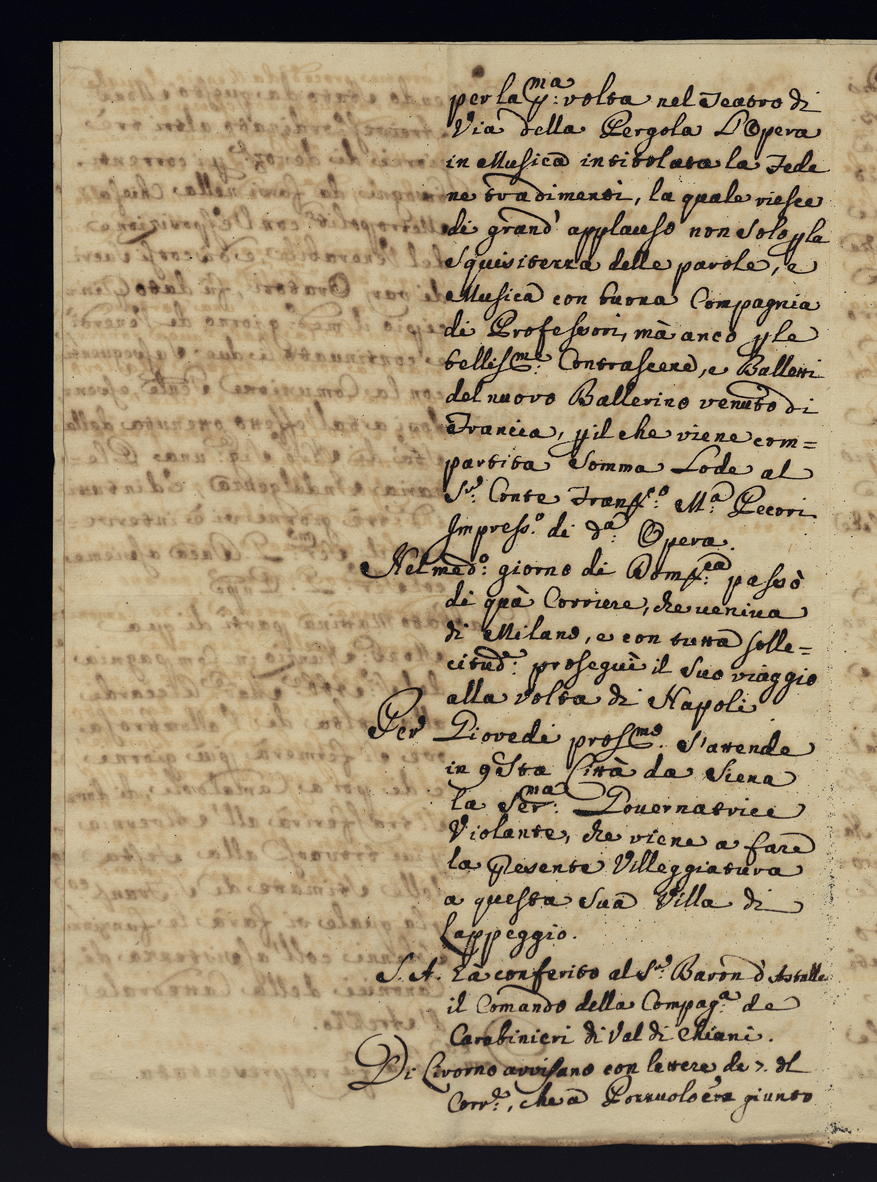 per la p:ma volta nel Teatro di
Via della Pergola L'Opera
in Musica intitolata la Fede
ne tradimenti, la quale riesce
di grand' applauso non solo p la
squisitezza delle parole, e
Musica con buona Compagnia
di Professori, mà anco p le
bellis.me Contrascene, e Balletti
del nuovo Ballerino venuto di
Francia, p il che viene com=
partita somma Lode al
S.r Conte Fran.co M.a Pecori
Impress.o di d.a Opera.
Nel med.o giorno di Dom.ca passò
di quà Corriere, che veniva
di Milano, e con tutta solle=
citud.e proseguì il suo viaggio
alla volta di Napoli
Per Giovedi pross.mo s'attende
in q.sta Città da Siena
la Ser.ma Governatrice
Violante, che viene a fare
la p̃esente Villeggiatura
a questa sua Villa di
Lappeggio.
S. A. hà conferito al S.r Baron d'
il Comando della Compag.a de
Carabinieri di Val di Chiani.
Di Livorno avvisano con lettere de 7. del
Corr.e, che a Pozzuolo era giunto